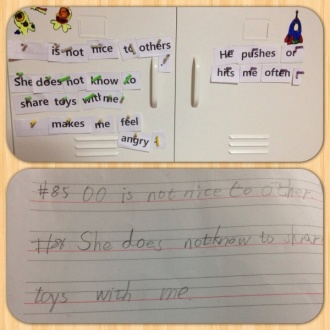 is not nice to others
She does not know to
share toys with me
makes me feel
angry
He pushes or
hits me often
#85 OO is not nice to other
She does not know to shar
toys with me.